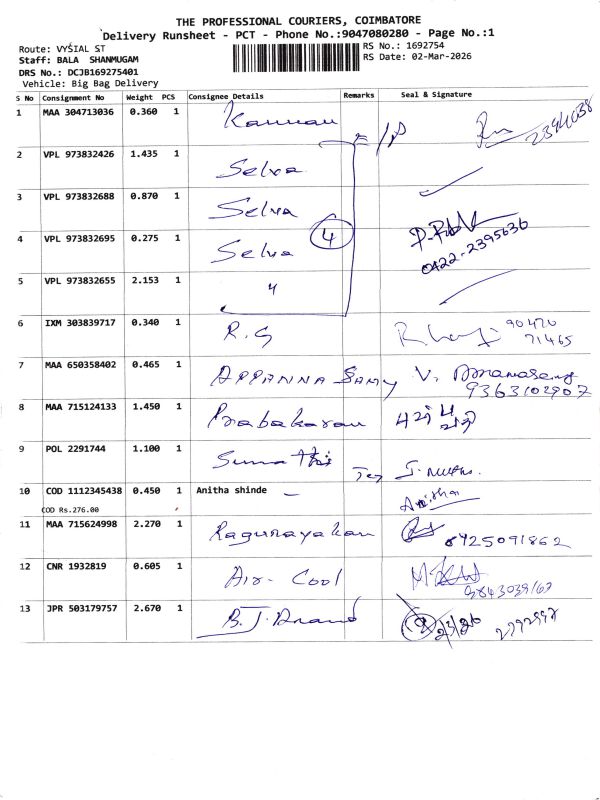 THE PROFESSIONAL COURIERS, COIMBATORE
Delivery Runsheet - PCT - Phone No.:9047080280 - Page No.:1
Route: VYSIAL ST
RS No.: 1692754
Staff: BALA SHANMUGAM
RS Date: 02-Mar-2026
DRS No.: DCJB169275401
Vehicle: Big Bag Delivery
S No Consignment No Weight PCS Consignee Details Remarks Seal & Signature
1 MAA 304713036 0.360 1 Kannan
2 VPL 973832426 1.435 1 Selva
3 VPL 973832688 0.870 1 Selva
4 VPL 973832695 0.275 1 Selva 4
0422-2395636
5 VPL 973832655 2.153 1 "
6 IXM 303839717 0.340 1 R.G 90470
71465
7 MAA 650358402 0.465 1 APPANNA SAMY V.
9363102907
8 MAA 715124133 1.450 1 Prabakaran
9 POL 2291744 1.100 1 Sumathi
10 COD 1112345438 0.450 1 Anitha shinde - Anitha
COD Rs.276.00
11 MAA 715624998 2.270 1 Ragunayakan
12 CNR 1932819 0.605 1 Air-Cool
13 JPR 503179757 2.670 1 B.J.Anand